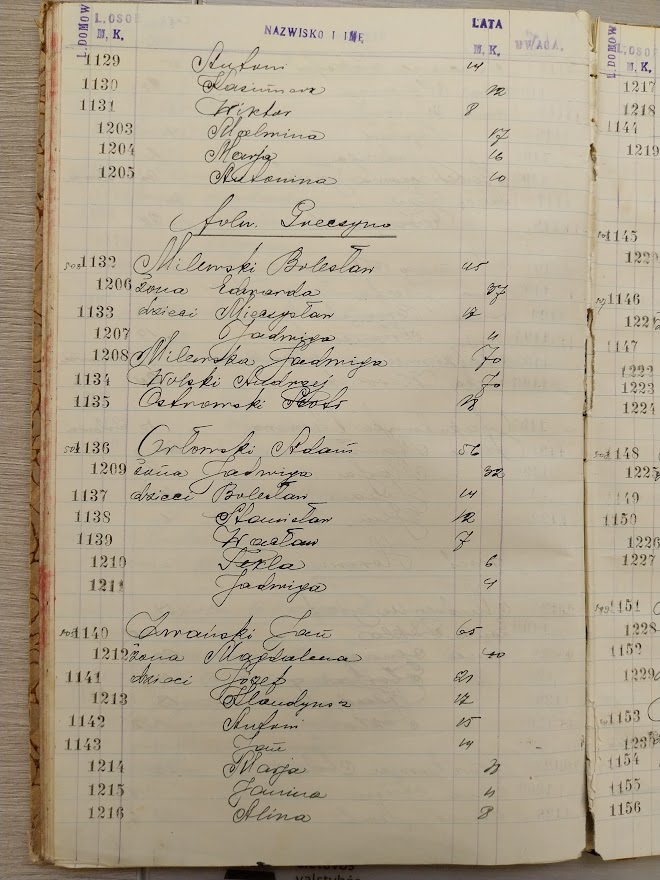 L. DOMÓW L. OSOB NAZWISKO I IMĘ LATA UWAGA.
M. K. M. K.
1129 Antoni 14
1130 Kazimierz 12
1131 Wiktor 8
1203 Malwina 17
1204 Marja 16
1205 Antonina 10
folw.
1132 Milewski Bolesław 45
1206 żona Edwarda 37
1133 dzieci Mieczysław 12
1207 Jadwiga 4
1208 Milewska Jadwiga 70
1134 Wolski Andrzej 70
1135 Ostrowski Piotr 18
1136 Orłowski Adam 56
1209 żona Jadwiga 32
1137 dzieci Bolesław 14
1138 Stanisław 12
1139 Wacław 7
1210 Tekla 6
1211 Jadwiga 4
1140 Iwański Jan 65
1212 żona Magdalena 40
1141 dzieci Józef 21
1213 17
1142 Antoni 15
1143 Jan 14
1214 Marja
1215 Janina
1216 Alina 8
L. DOMÓW L. OSOB
M. K.
1217
1218
1144
1219
1145
1146
1147
1222
1223
1224
1148
1149
1150
1226
1227
1151
1228
1152
1229
1153
1154
1155
1156